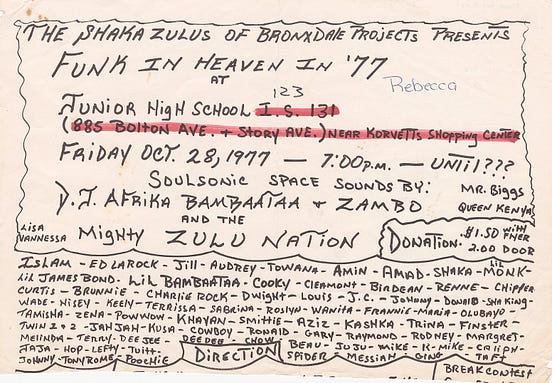 THE SHAKA ZULUS OF BRONXDALE PROJECTS PRESENTS
FUNK IN HEAVEN IN '77
AT
Rebecca
123
JUNIOR HIGH SCHOOL I.S. 131
(885 BOLTON AVE. + STORY AVE.) NEAR KORVETTS SHOPPING CENTER
FRIDAY OCT. 28, 1977 — 7:00 P.M. — UNTIL???
SOULSONIC SPACE SOUNDS BY:
D.J. AFRIKA BAMBAATAA + ZAMBO
MR. BIGGS
QUEEN KENYA
AND THE
LISA
VANNESSA
MIGHTY ZULU NATION
DONATION. $1.50 WITH FLYER
2.00 DOOR
ISLAM - ED LAROCK - JILL - AUDREY - TOWANA - AMIN - AMAD - SHAKA - LIL MONK -
LIL JAMES BOND. LIL BAMBAATAA - COOKY - CLEAMONT - BIRDEAN - RENNE - CHIPPER
CURTIS - BRUNNIE - CHARLIE ROCK - DWIGHT - LOUIS - J.C. - JOHNNY - DONALD - SHA KING -
WADE - HISEY - KEELY - TERRISSA - SABRINA - ROSLYN - WANITA - FRANNIE - MARIA - OLUBAYO -
TAMISHA - ZENA - POWWOW - KHAYAN - SMITTIE - AZIZ - KASHKA - TRINA - FINSTER -
TWIN 1 + 2 - JAHJAH - KUSA - COWBOY - RONALD - GARY - RAYMOND - RODNEY - MARGRET -
MELINDA - TERRY - DEE JEE - DEE DEE - CHOW BEAU - JUJU - MIKE - K-MIKE -
JAJA - HOP - LEFTY - TUITT - DIRECTION SPIDER - MESSIAH - QING TAFT
JOHNNY - TONY ROME - POOCHIE BREAK CONTEST